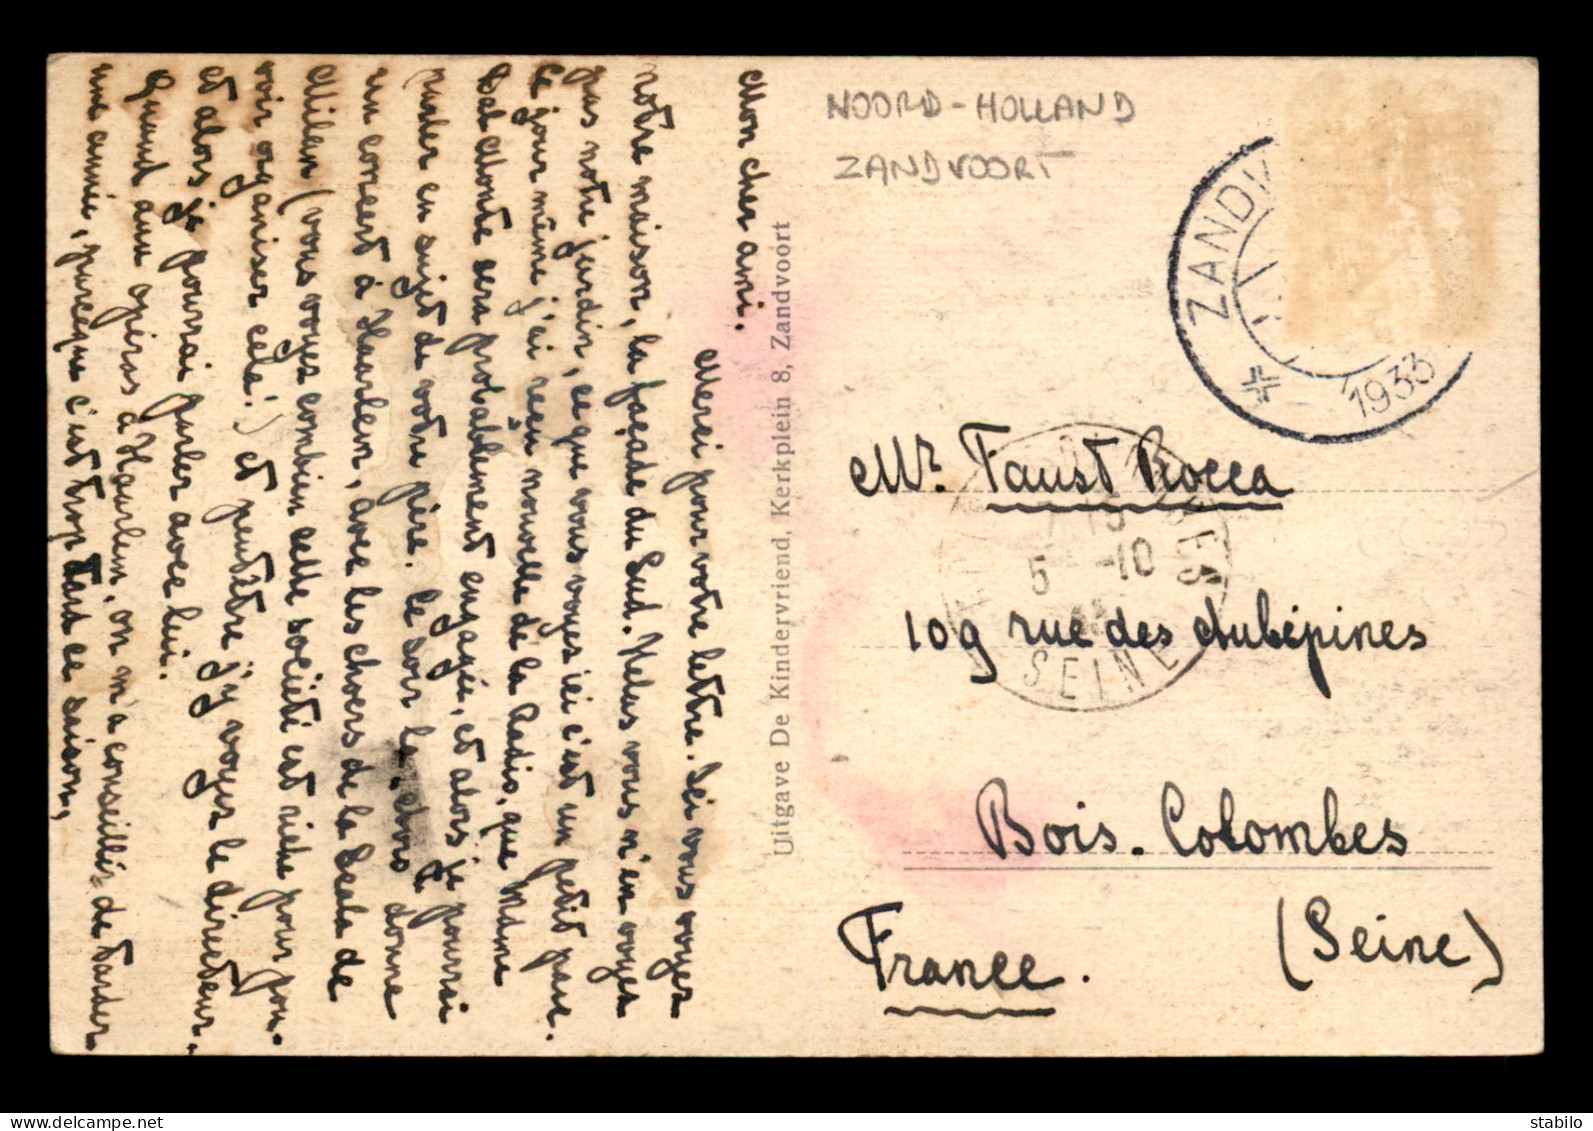 Mon cher ami.
Merci pour votre lettre. Ici vous voyez
notre maison, la façade du Sud. Helas vous n'en voyez
pas notre jardin, ce que vous voyez ici c'est un petit parc.
Ce jour même j'ai reçu nouvelle de la Radio, que Mdme
Dal Monte sera probablement engagée, et alors je pourrai
rester en sujet de votre père. Le soir la donne
un concert à Haarlem, avec les choers de la Scala de
Milan (vous voyez combien cette société est riche pour pou-
voir organiser cela!) et peutêtre j'y voyez le directeur,
et alors je pourrai parler avec lui.
Quand aux opéras à Haarlem, on m'a conseillé de tarder
une année, parceque c'est trop tard ce saison,
Uitgave De Kindervriend, Kerkplein 8, Zandvoort
NOORD-HOLLAND
ZANDVOORT
ZANDV
1933
Mr. Faust Rocca
5 -10
SEINE
109 rue des Aubépines
Bois-Colombes
(Seine)
France.
stabilo